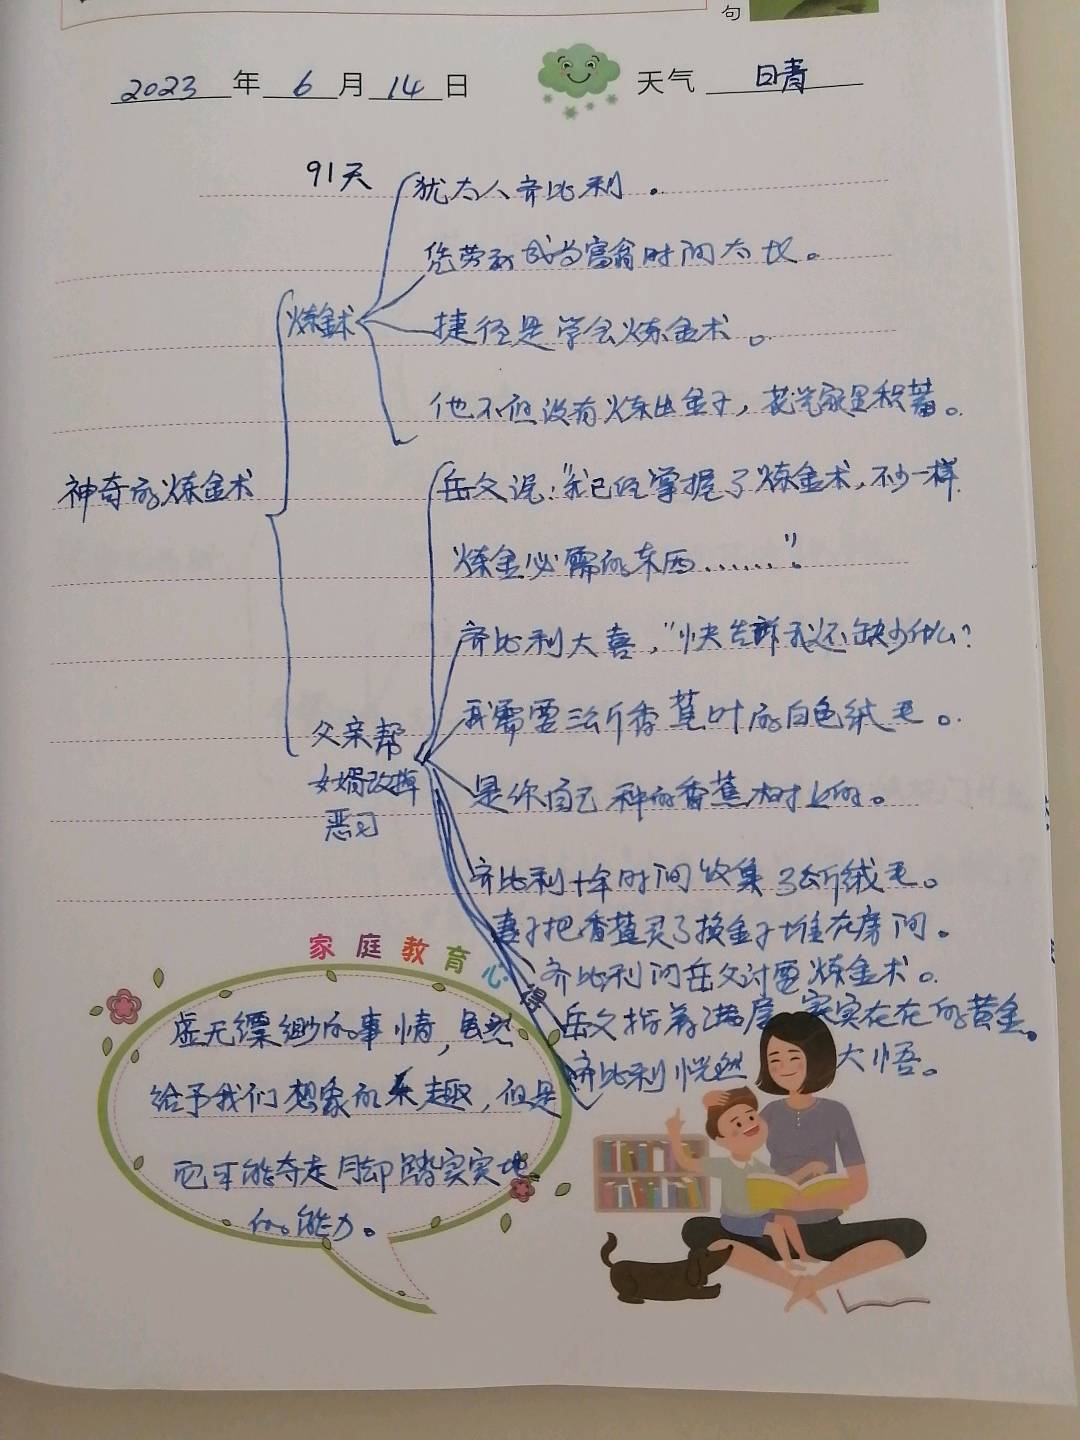 句
2023 年 6 月 14 日 天气 晴
91天
犹太人奇比利。
凭劳动成为富翁时间太长。
炼金术
捷径是学会炼金术。
他不但没有炼出金子，花光家里积蓄。
神奇的炼金术
岳父说："我已经掌握了炼金术，不少一样
炼金必需的东西......"。
齐比利大喜，"快告诉我还缺少什么？
我需要三公斤香蕉叶的白色绒毛。
父亲帮
女婿改掉
恶习
是你自己种的香蕉树上的。
齐比利十年时间收集3公斤绒毛。
妻子把香蕉卖了换金子堆在房间。
齐比利问岳父讨要炼金术。
岳父指着满屋实实在在的黄金。
齐比利恍然大悟。
家庭教育心得
虚无缥缈的事情，虽然
给予我们想象的乐趣，但是
它可能夺走脚踏实实地
的能力。